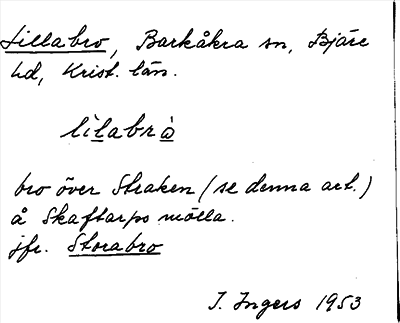 Lillabro, Barkåkra sn, Bjäre
hd, Krist. län.
lìlabrò
bro över Straken (se denna art.)
å Skaftarps mölla.
jfr. Storabro
I. Ingers 1953